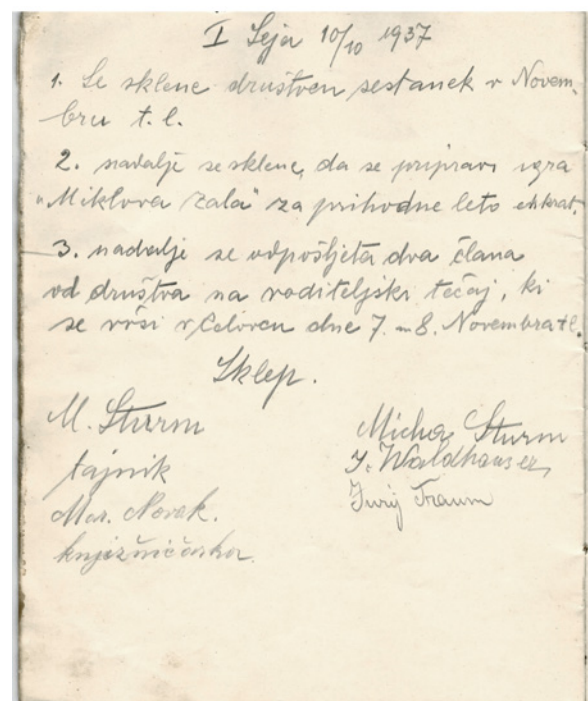 I Seja 10/10 1937
1. Se sklene društven sestanek v Novem-
bru t. l.
2. nadalje se sklene, da se pripravi igra
"Miklova Zala" za prihodne leto enkrat.
3. nadalje se odpošljeta dva člana
od društva na voditeljski tečaj, ki
se vrši v Celovcu dne 7. in 8. Novembra t.l.
Sklep.
M. Sturm
tajnik
Mar. Novak.
knjižničarka
Micha Sturm
J. Waldhauser
Jurij Traum